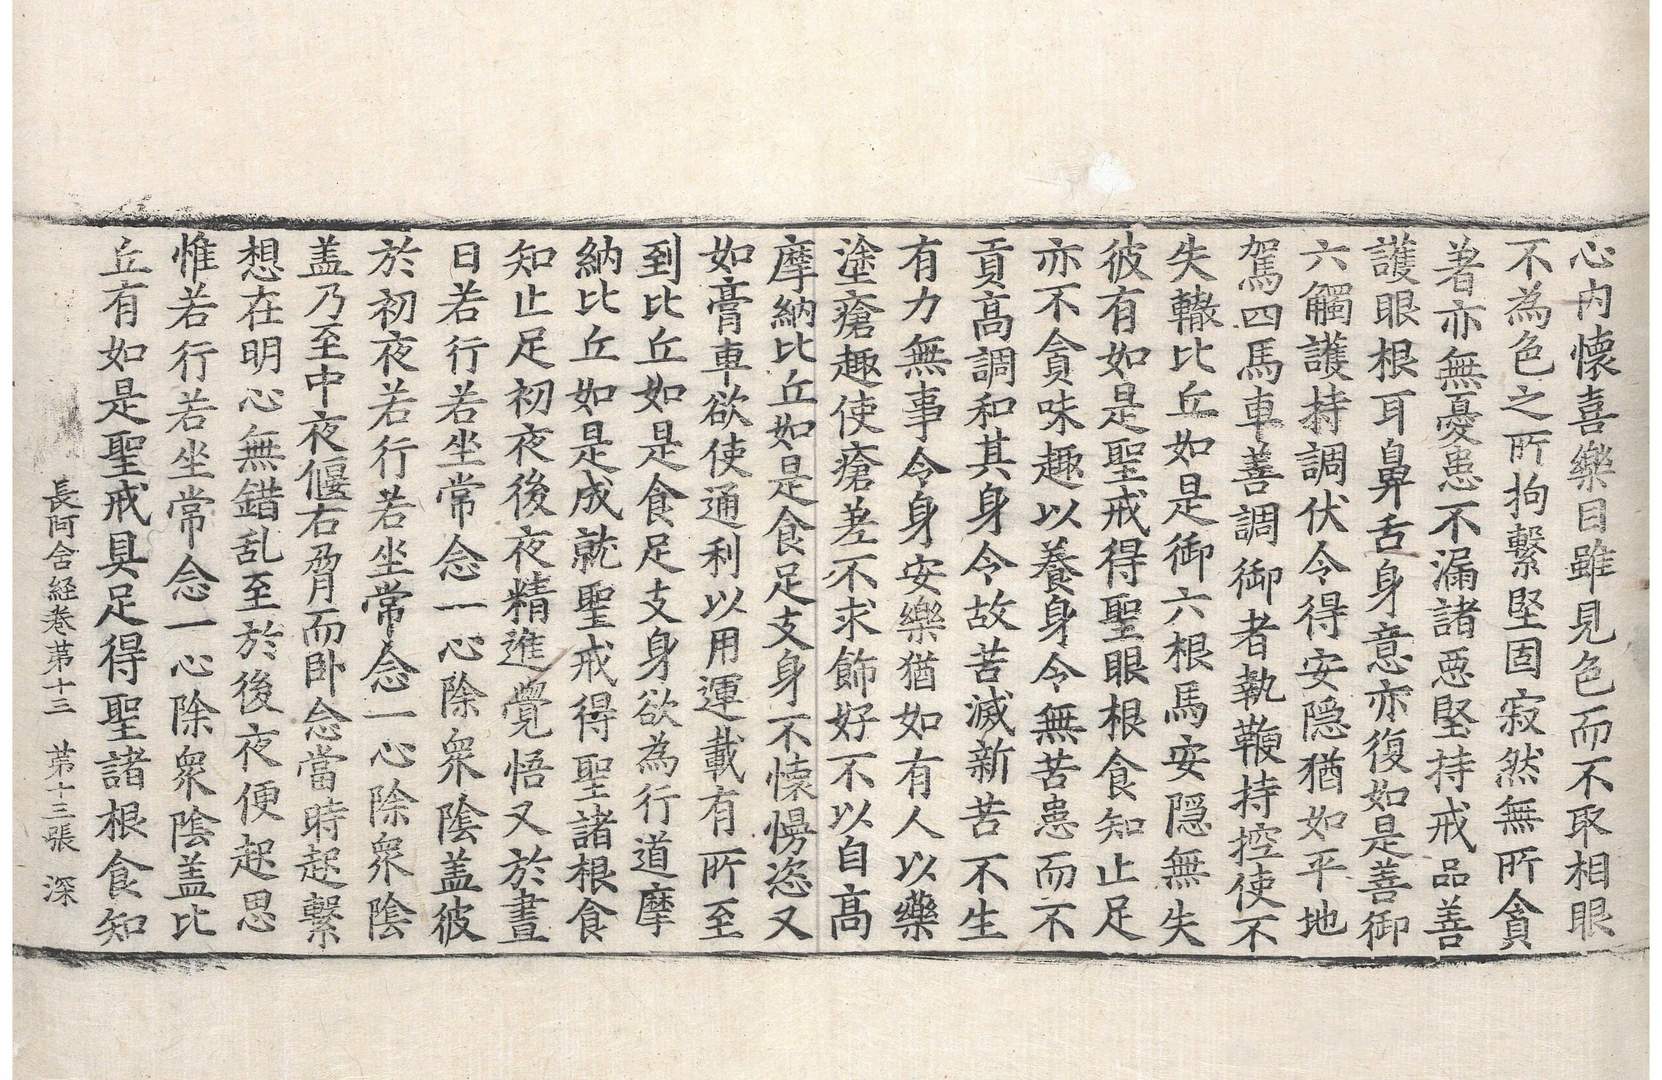 心内懷喜樂目雖見色而不取相眼
不為色之所拘繫堅固寂然無所貪
著亦無憂患不漏諸惡堅持戒品善
護眼根耳鼻舌身意亦復如是善御
六觸護持調伏令得安隱猶如平地
駕四馬車善調御者執鞭持控使不
失轍比丘如是御六根馬安隱無失
彼有如是聖戒得聖眼根食知止足
亦不貪味趣以養身令無苦患而不
貢高調和其身令故苦滅新苦不生
有力無事令身安樂猶如有人以藥
塗瘡趣使瘡差不求飾好不以自高
摩納比丘如是食足支身不懷慢恣又
如膏車欲使通利以用運載有所至
到比丘如是食足支身欲為行道摩
納比丘如是成就聖戒得聖諸根食
知止足初夜後夜精進覺悟又於晝
日若行若坐常念一心除衆陰盖彼
於初夜若行若坐常念一心除衆陰
盖乃至中夜偃右脅而卧念當時起繫
想在明心無錯乱至於後夜便起思
惟若行若坐常念一心除衆陰盖比
丘有如是聖戒具足得聖諸根食知
長阿含経卷苐十三　苐十三張　深